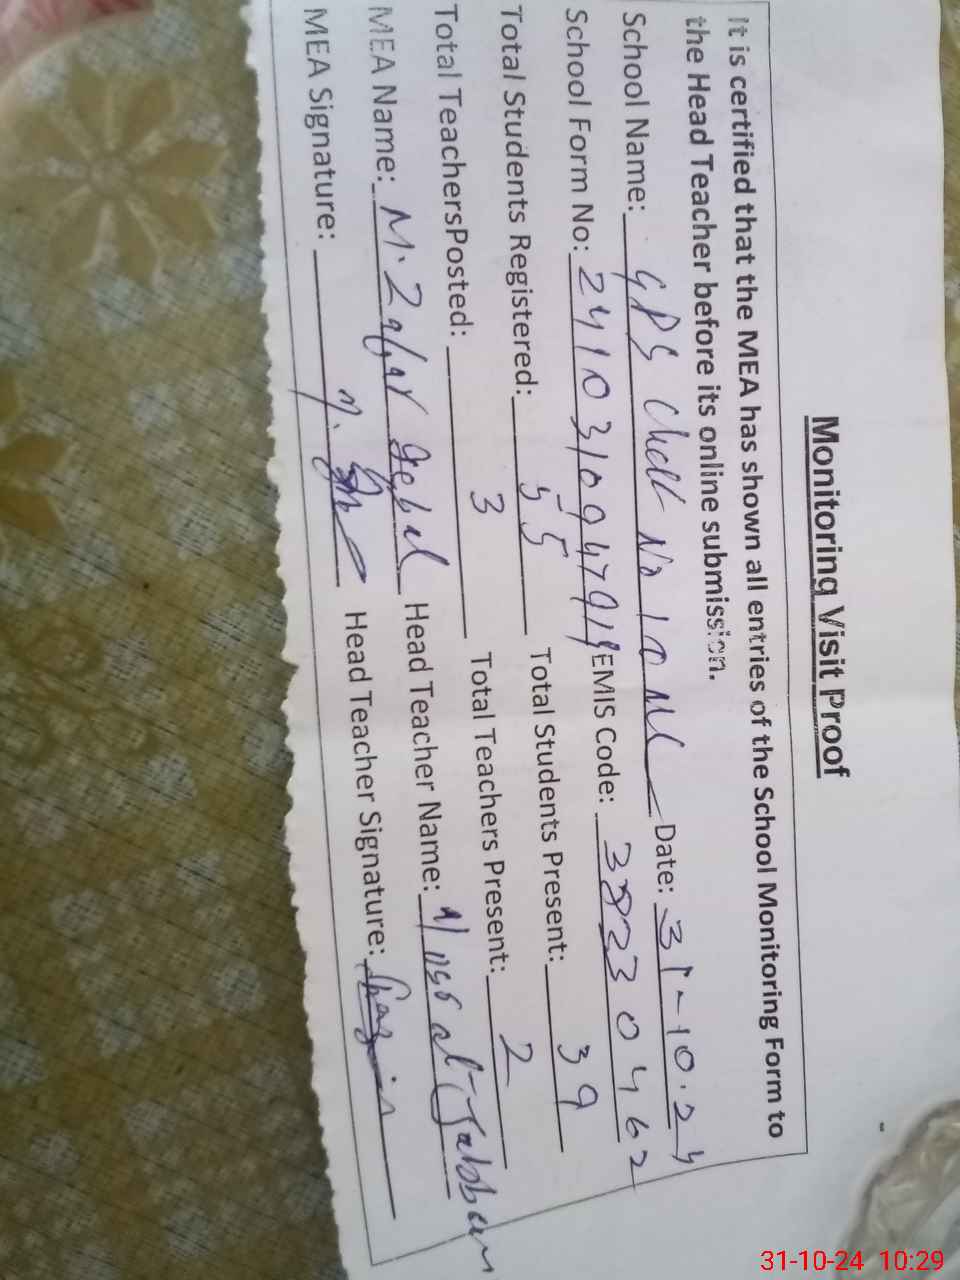 Monitoring Visit Proof
It is certified that the MEA has shown all entries of the School Monitoring Form to
the Head Teacher before its online submission.
School Name: GPS Chak No 10 ML Date: 31-10.24
School Form No: 24103109479 EMIS Code: 38230462
Total Students Registered: 55 Total Students Present: 39
Total TeachersPosted: 3 Total Teachers Present: 2
MEA Name: M. Zafar Iqbal Head Teacher Name: Jabbar
MEA Signature: Head Teacher Signature:
31-10-24 10:29